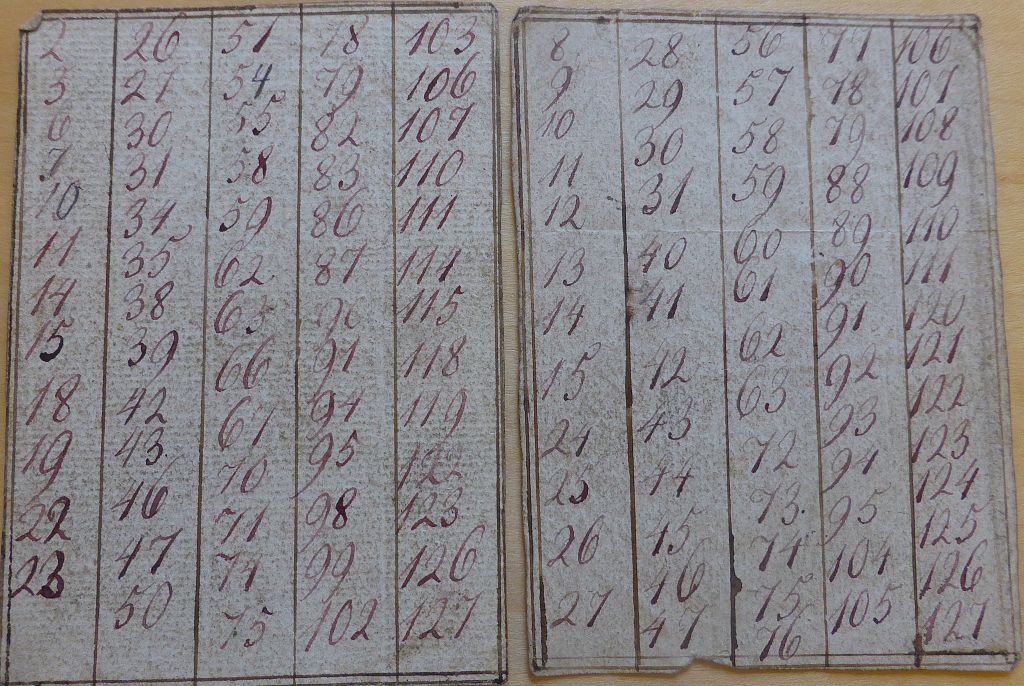 2 26 51 78 103
3 27 54 79 106
6 30 55 82 107
7 31 58 83 110
10 34 59 86 111
11 35 62 87 114
14 38 63 90 115
15 39 66 91 118
18 42 67 94 119
19 43 70 95 122
22 46 71 98 123
23 47 74 99 126
50 75 102 127
8 28 56 77 106
9 29 57 78 107
10 30 58 79 108
11 31 59 88 109
12 40 60 89 110
13 41 61 90 111
14 42 62 91 120
15 43 63 92 121
24 44 72 93 122
25 45 73 94 123
26 46 74 95 124
27 47 75 104 125
76 105 126
127